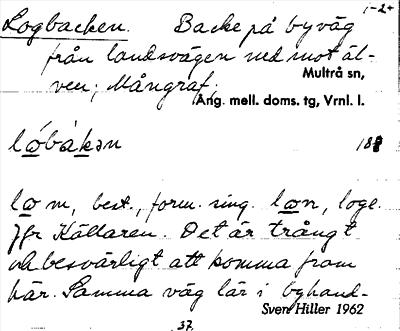 1-2+
Logbacken. Backe på byväg
från landsvägen ned mot äl-
ven; Mångraf.
Multrå sn,
Ång. mell. doms. tg, Vrnl. l.
lóbákən 18
lo m, best., form. sing. lon, loge.
Jfr Källaren. Det är trångt
och besvärligt att komma fram
här. Samma väg lär i byhand-
Sven Hiller 1962
37.